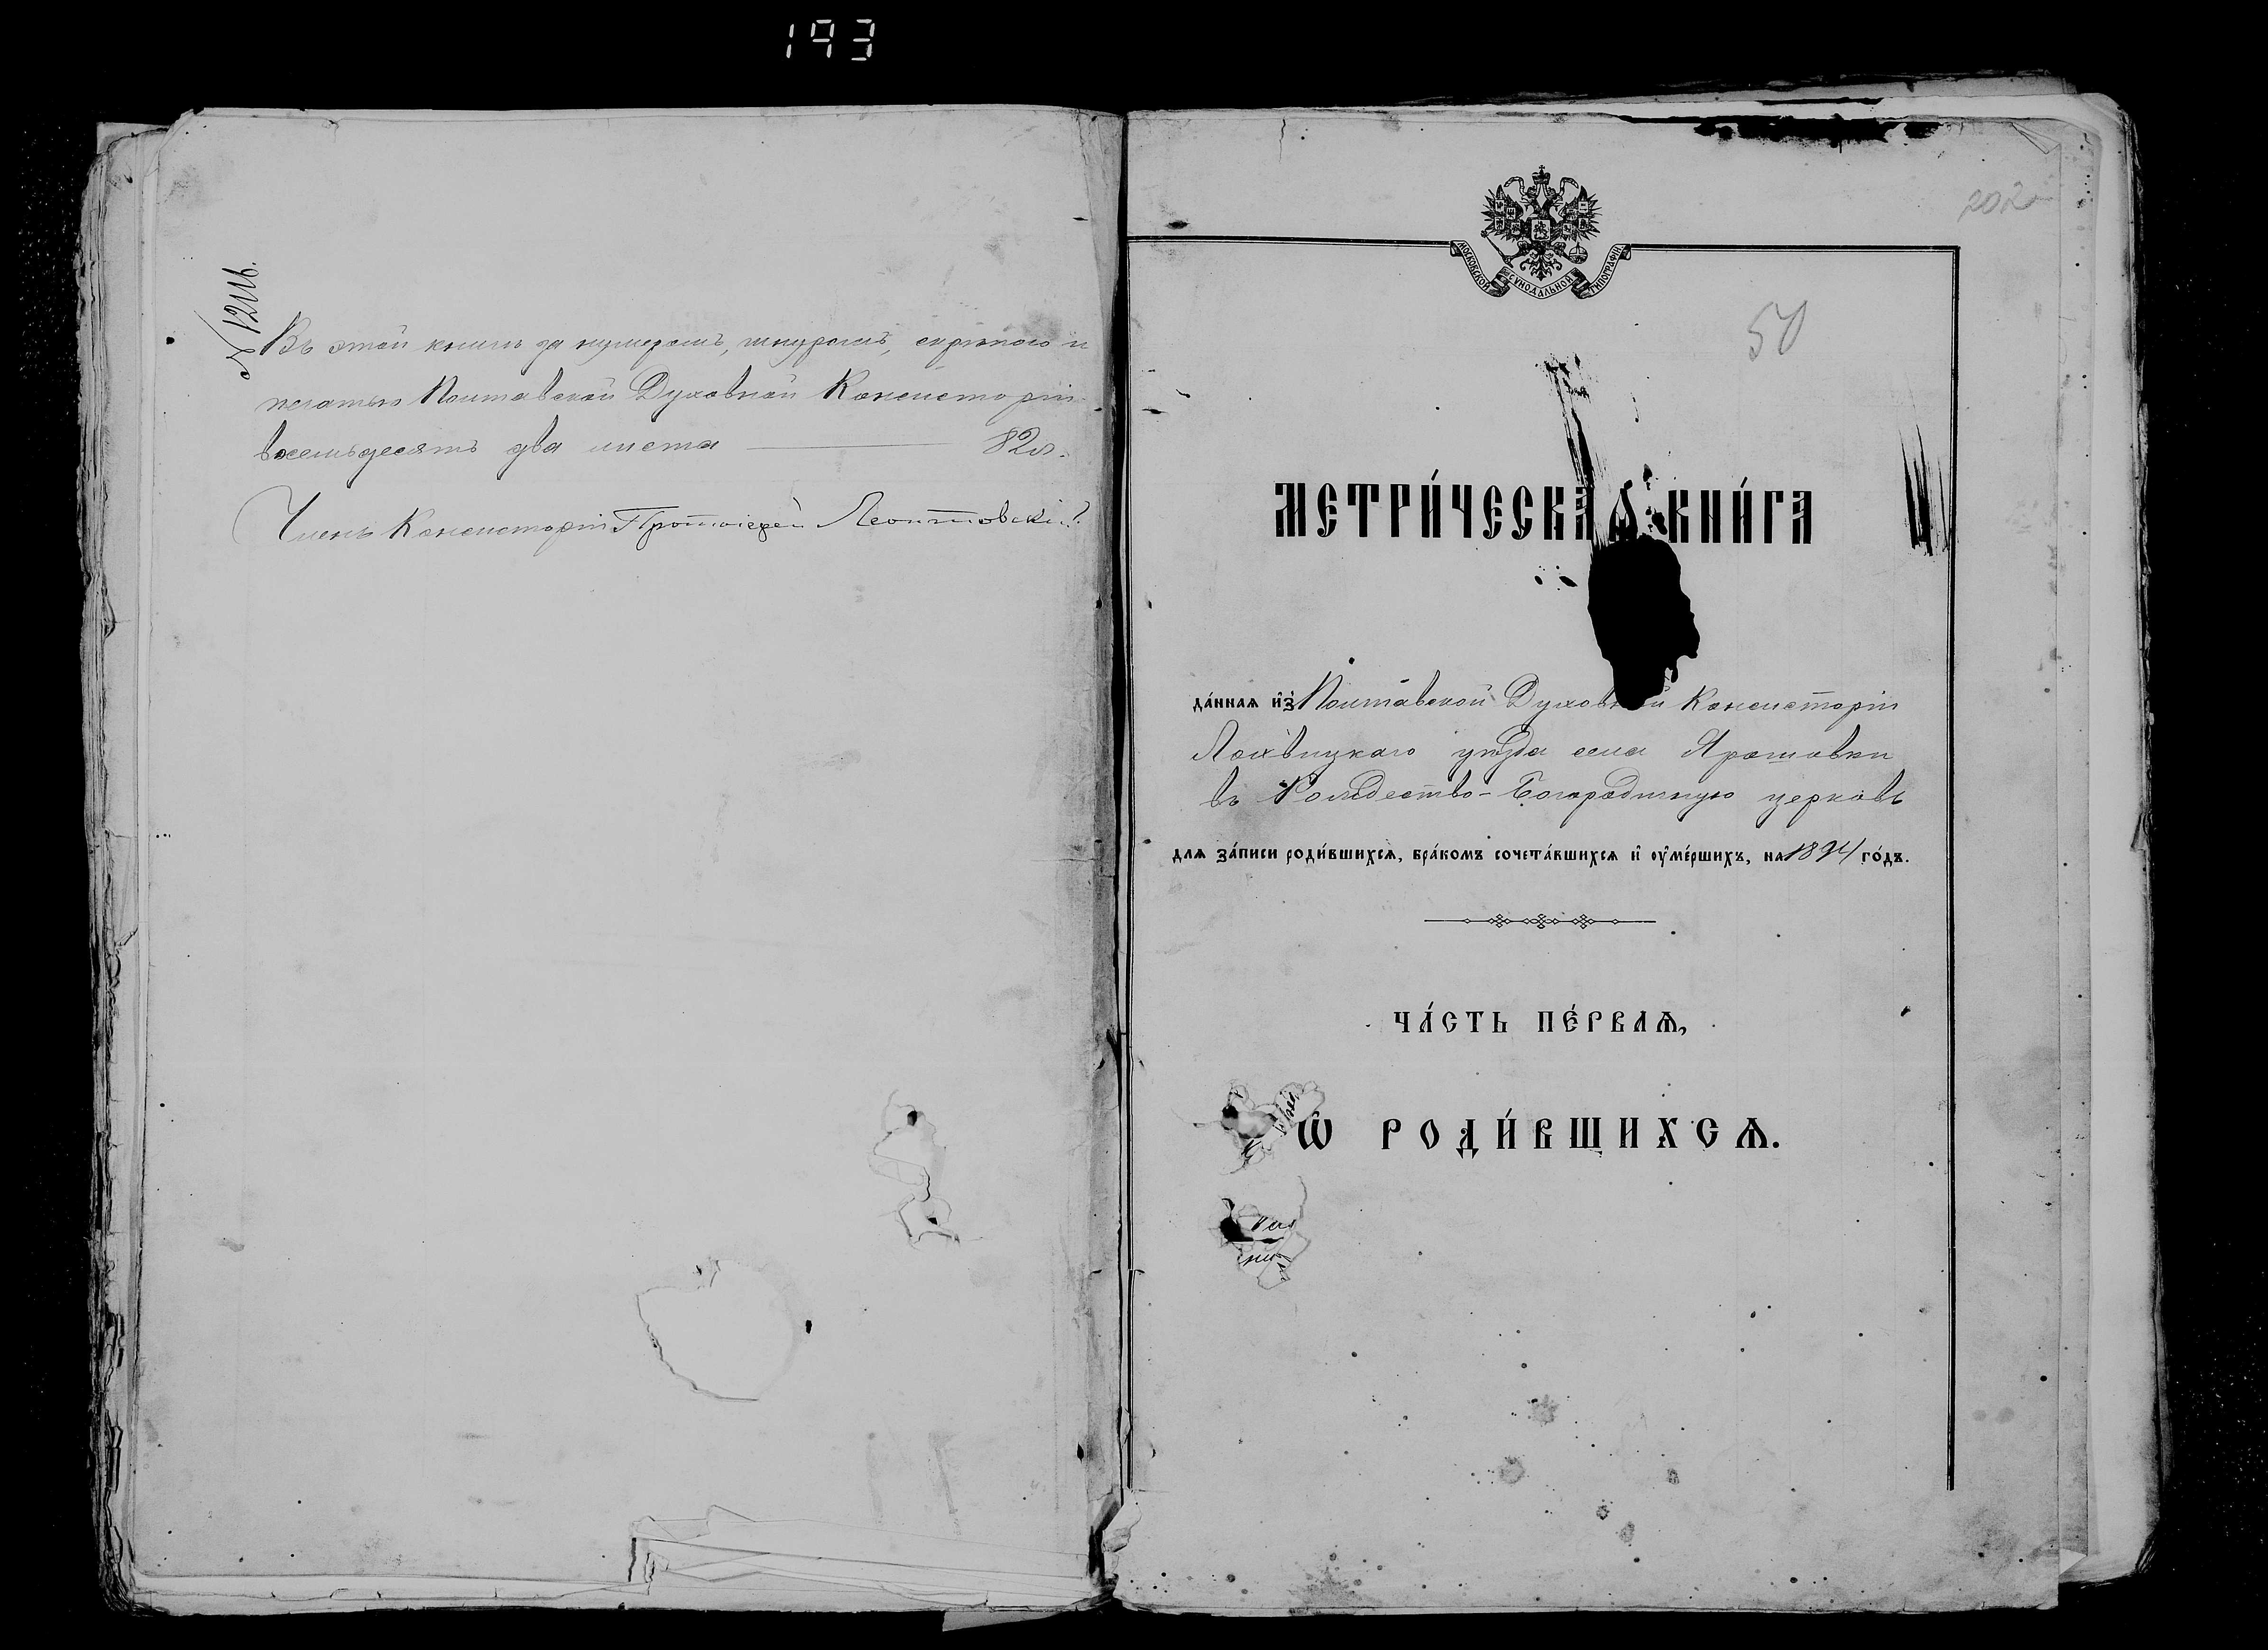 193
Въ этой книгѣ за нумеромъ, шнуромъ, скрѣпою и
печатью Полтавской Духовной Консисторіи
восемьдесятъ два листа 82 л.
Членъ Консисторіи Протоіерей
202
МОСКОВСКОЙ СѴНОДАЛЬНОЙ ТИПОГРАФІИ
50
МЕТРИ́ЧЕСКАѦ КНИ́ГА
да́ннаѧ и҆зъ Полтавской Духовной Консисторіи
Лохвицкаго уѣзда села Ярошовки
въ Рождество-Богородичную церковь
длѧ за́писи роди́вшихсѧ, бра́комъ сочета́вшихсѧ и҆ оу҆ме́ршихъ, на 1894 го́дъ.
ЧА́СТЬ ПЕ́РВАѦ,
Ѡ҆ РОДИ́ВШИХСѦ.